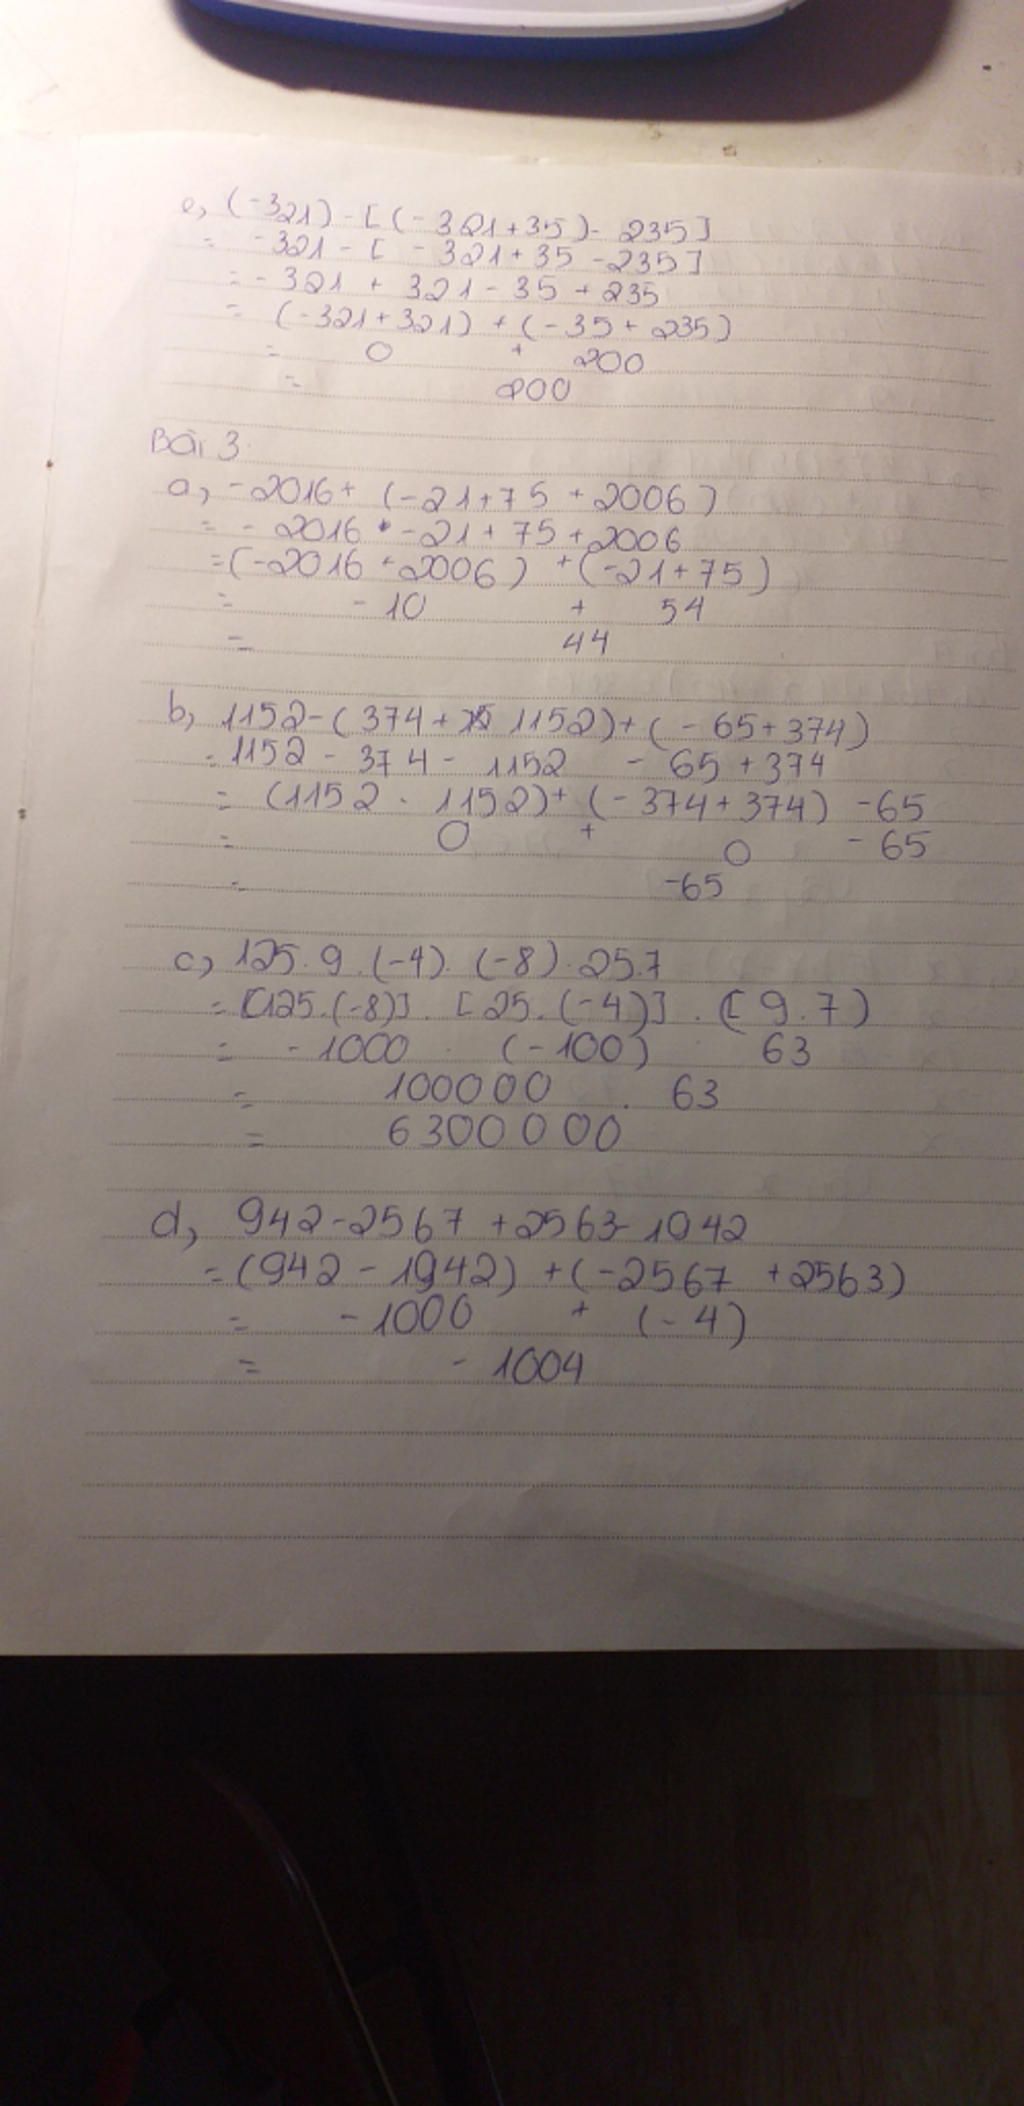 e, (-321) - [(-321+35)- 235]
= -321 - [ - 321+35 -235]
= - 321 + 321 - 35 + 235
= (-321+321) + (-35+235)
= 0 + 200
= 200
Bài 3
a, -2016+ (-21+75 +2006)
= - 2016 -21+75+2006
=(-2016+2006) +(-21+75)
= -10 + 54
= 44
b, 1152-(374+ 1152)+(-65+374)
= 1152 - 374 - 1152 - 65 +374
= (1152 - 1152)+ (-374+374) -65
= 0 + 0 - 65
= -65
c, 125.9.(-4).(-8).25.7
= [125.(-8)]. [25.(-4)] . ([9.7)
= -1000 . (-100) 63
= 100000 . 63
= 6300000
d, 942-2567 +2563-1942
=(942 - 1942) +(-2567 +2563)
= -1000 + (-4)
= - 1004